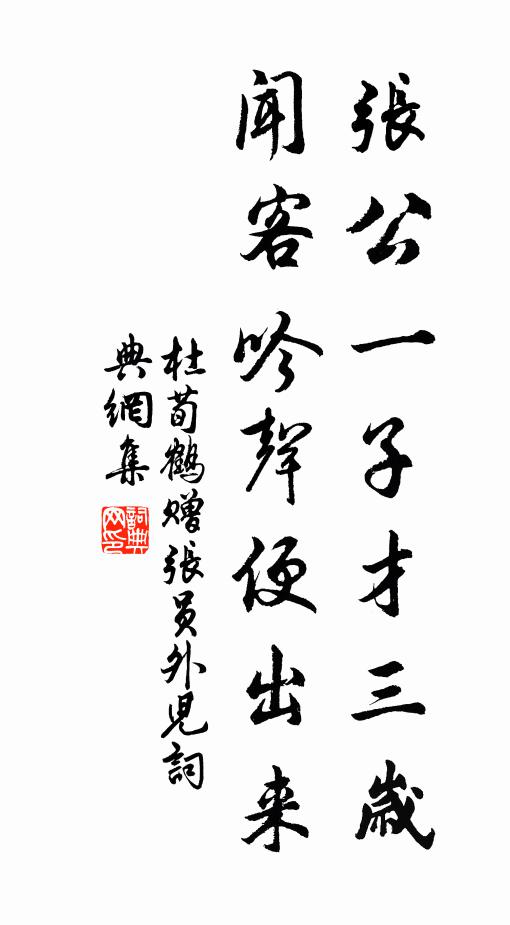 張公一子才三歲
聞客吟聲便出来
杜荀鶴贈張員外児詞
典網集
詞典
网印